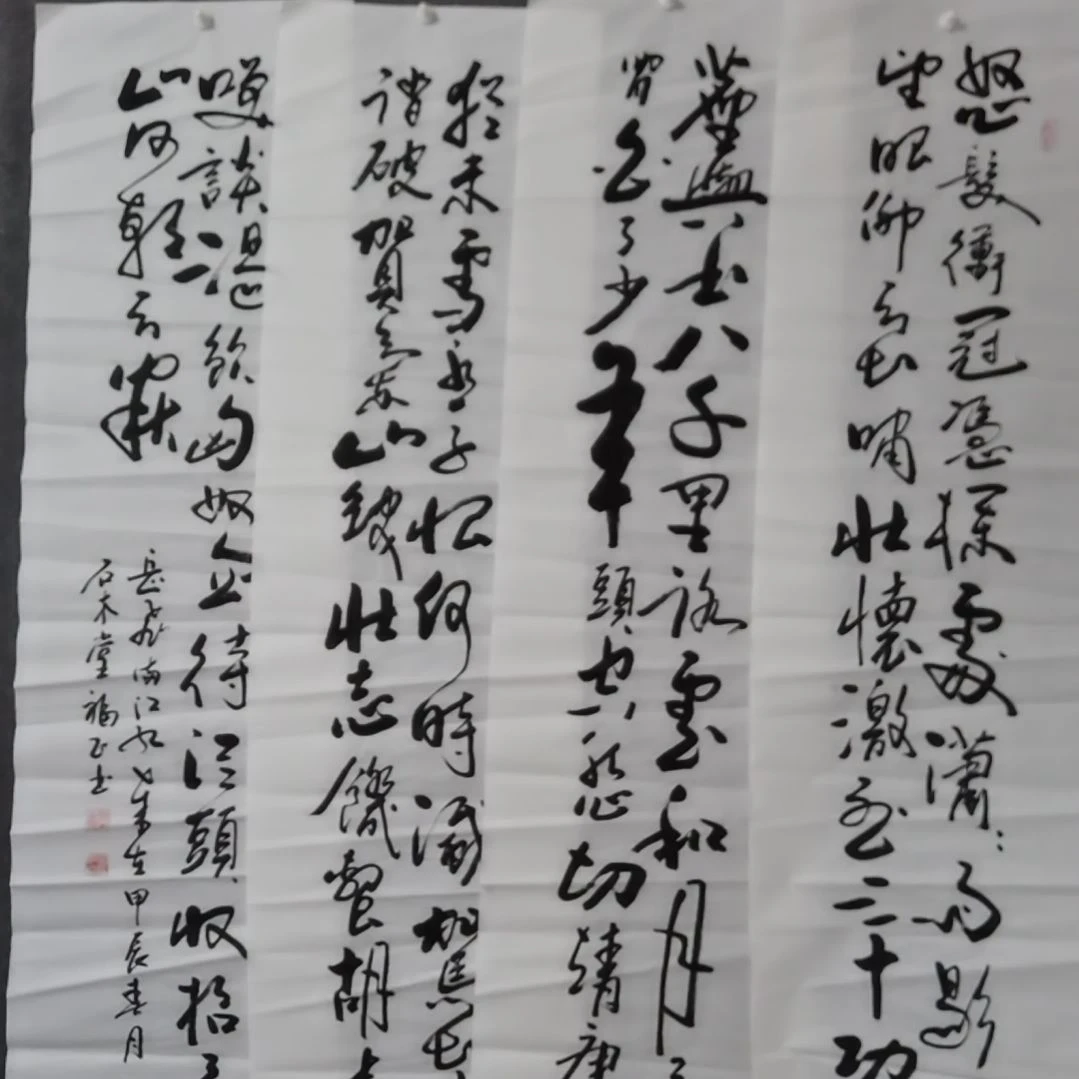 怒髮衝冠憑欄處瀟瀟雨歇
望眼仰天長嘯壯懷激烈三十功
塵與土八千里路雲和月
閒白了少年頭空悲切靖康
猶未雪臣子恨何時滅駕長
踏破賀蘭山缺壯志饑餐胡
笑談渴飲匈奴血待從頭收拾
山河朝天闕
岳飛滿江紅 甲辰春月
石木堂福 书